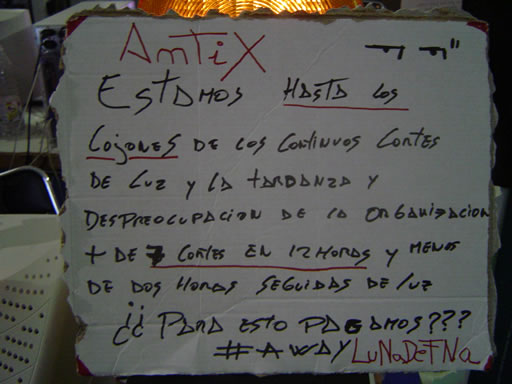 AmTiX
ESTAMOS HASTA LOS
COJONES DE LOS CONTINUOS CORTES
DE LUZ Y LA TARDANZA Y
DESPREOCUPACION DE LA ORGANIZACION
+ DE 7 CORTES EN 12 HORAS Y MENOS
DE DOS HORAS SEGUIDAS DE LUZ
¿¿ PARA ESTO PAGAMOS???
#AWAY LuNaDeFNa